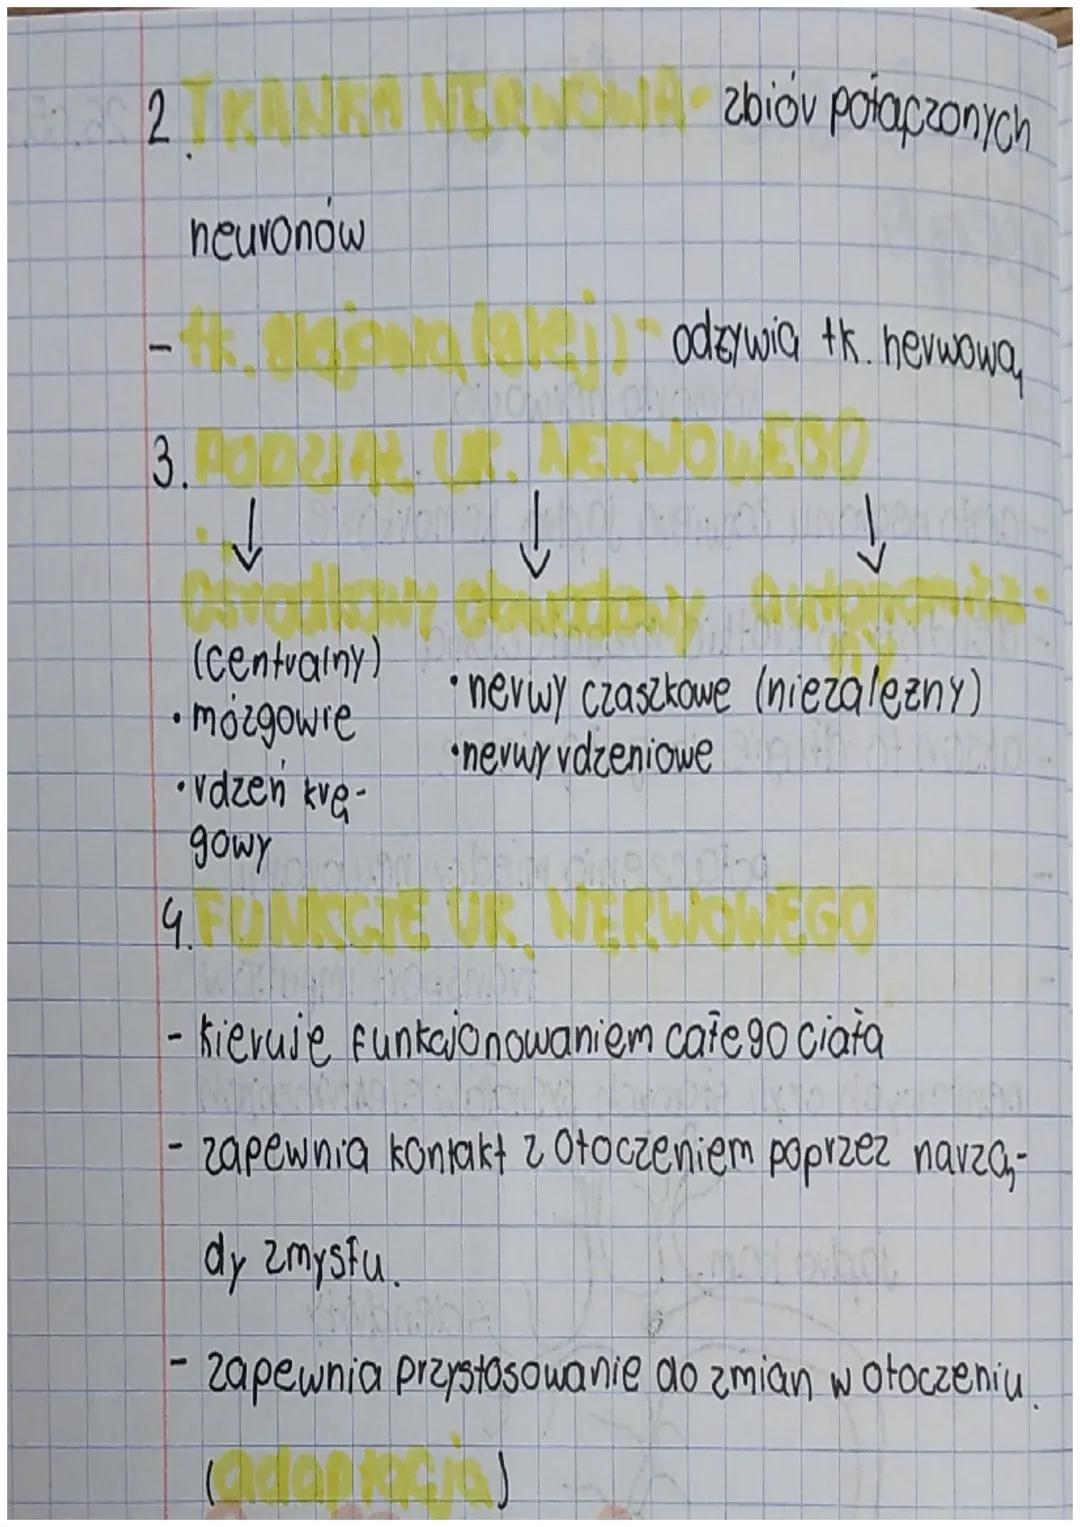 2. TKANKA NERWOWA - zbiór połączonych
neuronów
- tk. glejowa (glej) - odżywia tk. nerwową
3. PODZIAŁ UK. NERWOWEGO
Ośrodkowy obwodowy autonomicz-
ny
(centralny)
• nerwy czaszkowe (niezależny)
• mózgowie
• nerwy rdzeniowe
• rdzeń krę-
gowy
4. FUNKCJE UK. NERWOWEGO
- kieruje funkcjonowaniem całego ciała
- zapewnia kontakt z otoczeniem poprzez narzą-
dy zmysłu.
- zapewnia przystosowanie do zmian w otoczeniu.
(adaptacja)